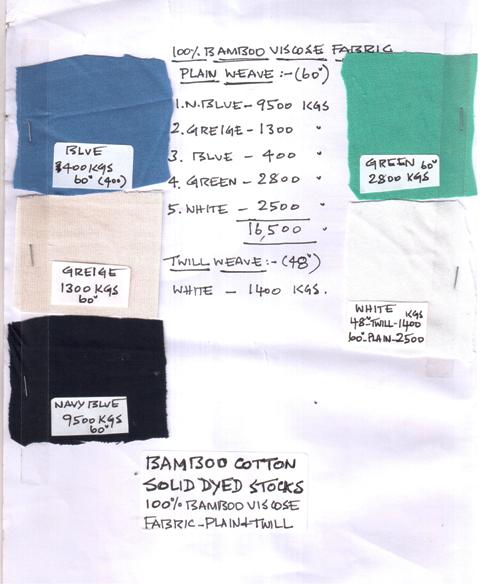 100% BAMBOO VISCOSE FABRIC
PLAIN WEAVE :- (60")
1. N. BLUE - 9500 KGS
2. GREIGE - 1300 "
3. BLUE - 400 "
4. GREEN - 2800 "
5. WHITE - 2500 "
16,500 "
TWILL WEAVE :- (48")
WHITE - 1400 KGS.
BLUE
400 KGS
60" (400)
GREIGE
1300 KGS
60"
NAVY BLUE
9500 KGS
60"
GREEN 60"
2800 KGS
WHITE KGS
48"-TWILL-1400
60"-PLAIN-2500
BAMBOO COTTON
SOLID DYED STOCKS
100% BAMBOO VISCOSE
FABRIC-PLAIN+TWILL